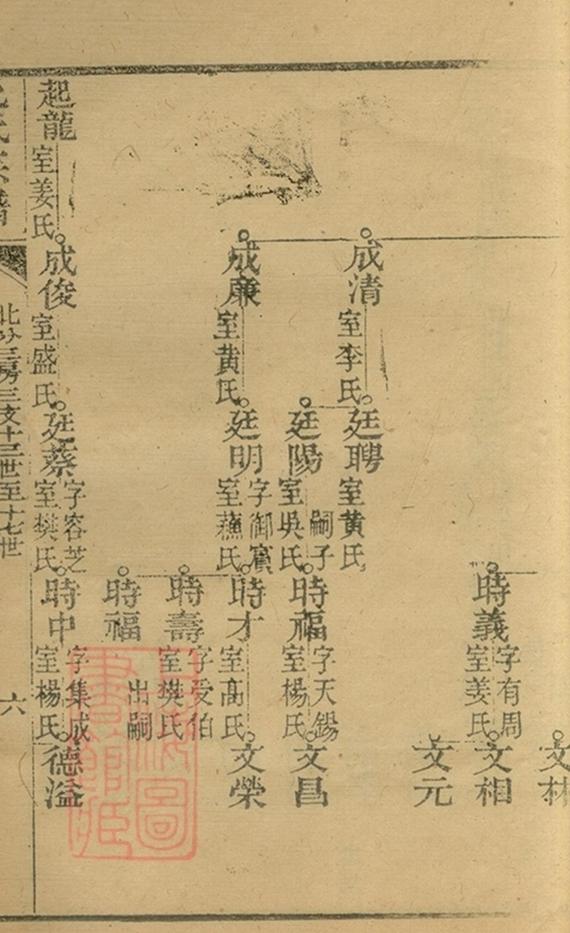 文林
文相
文元
時義
字有周
室姜氏
成清
室李氏
廷聘
室黄氏
廷陽
嗣子
室吳氏
時福
字天錫
室楊氏
文昌
成廉
室黄氏
廷明
字御賓
室蘓氏
時才
室高氏
文榮
時壽
字受伯
室樊氏
時福
出嗣
起龍
室姜氏
成俊
室盛氏
廷蔡
字容芝
室樊氏
時中
字集成
室楊氏
德溢
三房三支十三世至十七世
六